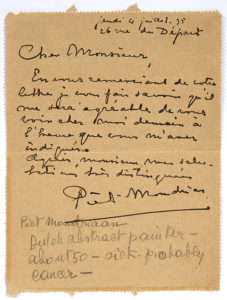 jeudi 4 juillet 35
26 rue du Départ
Cher Monsieur,
En vous remerciant de votre
lettre je vous fais savoir qu'il
me sera agréable de vous
voir chez moi demain à
l'heure que vous m'avez
indiquée.
Agréez, monsieur, mes salu-
tations très distinguées
Piet Mondrian
Piet
Dutch abstract painter -
about 50 - sick - probably
cancer -